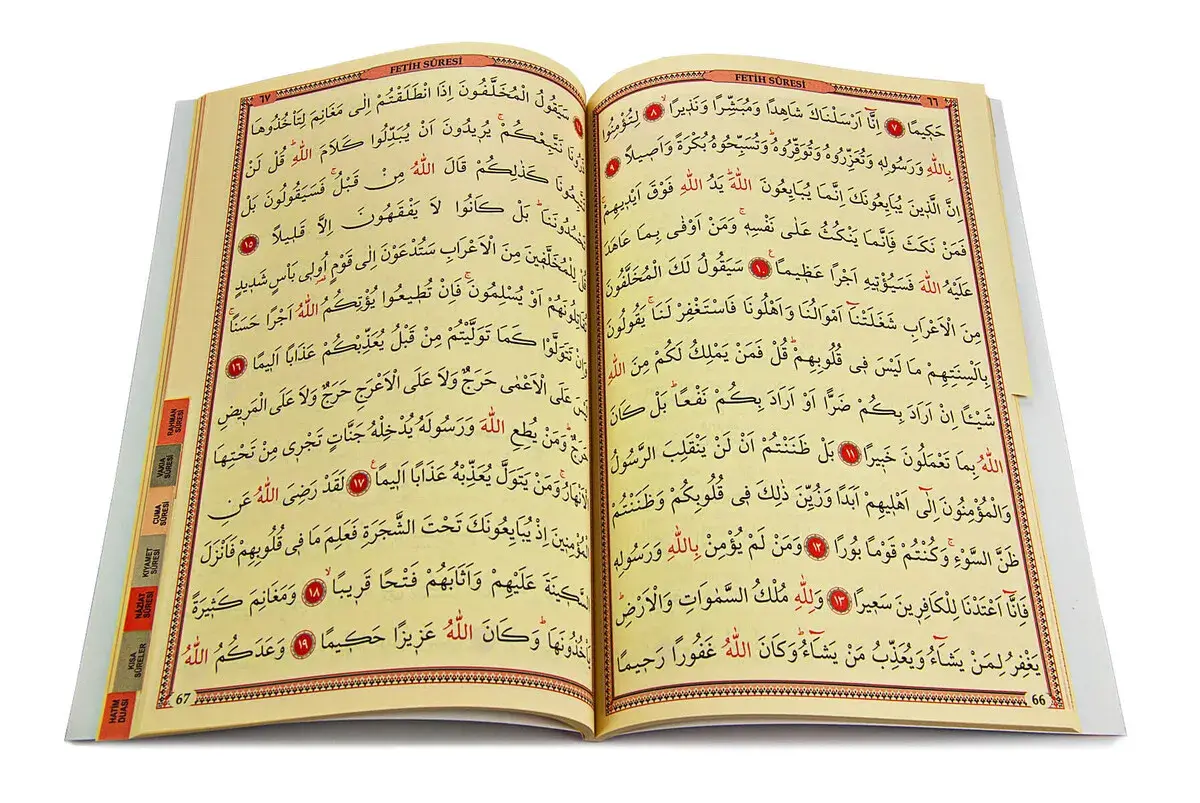 FETİH SÛRESİ
٦٦
حَكِيمًا ٧ اِنَّٓا اَرْسَلْنَاكَ شَاهِدًا وَمُبَشِّرًا وَنَذِيرًاۙ ٨ لِتُؤْمِنُوا
بِاللّٰهِ وَرَسُولِهِ وَتُعَزِّرُوهُ وَتُوَقِّرُوهُۜ وَتُسَبِّحُوهُ بُكْرَةً وَاَصِيلًا ٩
اِنَّ الَّذِينَ يُبَايِعُونَكَ اِنَّمَا يُبَايِعُونَ اللّٰهَۜ يَدُ اللّٰهِ فَوْقَ اَيْدِيهِمْۚ
فَمَنْ نَكَثَ فَاِنَّمَا يَنْكُثُ عَلٰى نَفْسِهِۚ وَمَنْ اَوْفٰى بِمَا عَاهَدَ
عَلَيْهُ اللّٰهَ فَسَيُؤْتِيهِ اَجْرًا عَظِيمًا ١٠ سَيَقُولُ لَكَ الْمُخَلَّفُونَ
مِنَ الْاَعْرَابِ شَغَلَتْنَٓا اَمْوَالُنَا وَاَهْلُونَا فَاسْتَغْفِرْ لَنَاۚ يَقُولُونَ
بِاَلْسِنَتِهِمْ مَا لَيْسَ فِي قُلُوبِهِمْۜ قُلْ فَمَنْ يَمْلِكُ لَكُمْ مِنَ اللّٰهِ
شَيْـًٔا اِنْ اَرَادَ بِكُمْ ضَرًّا اَوْ اَرَادَ بِكُمْ نَفْعًاۜ بَلْ كَانَ
اللّٰهُ بِمَا تَعْمَلُونَ خَبِيرًا ١١ بَلْ ظَنَنْتُمْ اَنْ لَنْ يَنْقَلِبَ الرَّسُولُ
وَالْمُؤْمِنُونَ اِلٰٓى اَهْلِيهِمْ اَبَدًا وَزُيِّنَ ذٰلِكَ فِي قُلُوبِكُمْ وَظَنَنْتُمْ
ظَنَّ السَّوْءِۚ وَكُنْتُمْ قَوْمًا بُورًا ١٢ وَمَنْ لَمْ يُؤْمِنْ بِاللّٰهِ وَرَسُولِهِ
فَاِنَّٓا اَعْتَدْنَا لِلْكَافِرِينَ سَعِيرًا ١٣ وَلِلّٰهِ مُلْكُ السَّمٰوَاتِ وَالْاَرْضِۜ
يَغْفِرُ لِمَنْ يَشَٓاءُ وَيُعَذِّبُ مَنْ يَشَٓاءُۜ وَكَانَ اللّٰهُ غَفُورًا رَحِيمًا
66
FETİH SÛRESİ
٦٧
سَيَقُولُ الْمُخَلَّفُونَ اِذَا انْطَلَقْتُمْ اِلٰى مَغَانِمَ لِتَأْخُذُوهَا
نَتَّبِعْكُمْۚ يُرِيدُونَ اَنْ يُبَدِّلُوا كَلَامَ اللّٰهِۜ قُلْ لَنْ
كَذٰلِكُمْ قَالَ اللّٰهُ مِنْ قَبْلُۚ فَسَيَقُولُونَ بَلْ
بَلْ كَانُوا لَا يَفْقَهُونَ اِلَّا قَلِيلًا ١٥
لِلْمُخَلَّفِينَ مِنَ الْاَعْرَابِ سَتُدْعَوْنَ اِلٰى قَوْمٍ اُولِي بَأْسٍ شَدِيدٍ
اَوْ يُسْلِمُونَۚ فَاِنْ تُطِيعُوا يُؤْتِكُمُ اللّٰهُ اَجْرًا حَسَنًاۚ
تَتَوَلَّوْا كَمَا تَوَلَّيْتُمْ مِنْ قَبْلُ يُعَذِّبْكُمْ عَذَابًا اَلِيمًا ١٦
عَلَى الْاَعْمٰى حَرَجٌ وَلَا عَلَى الْاَعْرَجِ حَرَجٌ وَلَا عَلَى الْمَرِيضِ
حَرَجٌۜ وَمَنْ يُطِعِ اللّٰهَ وَرَسُولَهُ يُدْخِلْهُ جَنَّاتٍ تَجْرِي مِنْ تَحْتِهَا
الْاَنْهَارُۚ وَمَنْ يَتَوَلَّ يُعَذِّبْهُ عَذَابًا اَلِيمًا ١٧ لَقَدْ رَضِيَ اللّٰهُ عَنِ
الْمُؤْمِنِينَ اِذْ يُبَايِعُونَكَ تَحْتَ الشَّجَرَةِ فَعَلِمَ مَا فِي قُلُوبِهِمْ فَاَنْزَلَ
السَّكِينَةَ عَلَيْهِمْ وَاَثَابَهُمْ فَتْحًا قَرِيبًاۙ ١٨ وَمَغَانِمَ كَثِيرَةً
يَأْخُذُونَهَاۜ وَكَانَ اللّٰهُ عَزِيزًا حَكِيمًا ١٩ وَعَدَكُمُ اللّٰهُ
67
RAHMAN
SÛRESİ
VAKIA
SÛRESİ
CUMA
SÛRESİ
KIYAMET
SÛRESİ
NAZİAT
SÛRESİ
KISA
SÛRELER
HATİM
DUASI